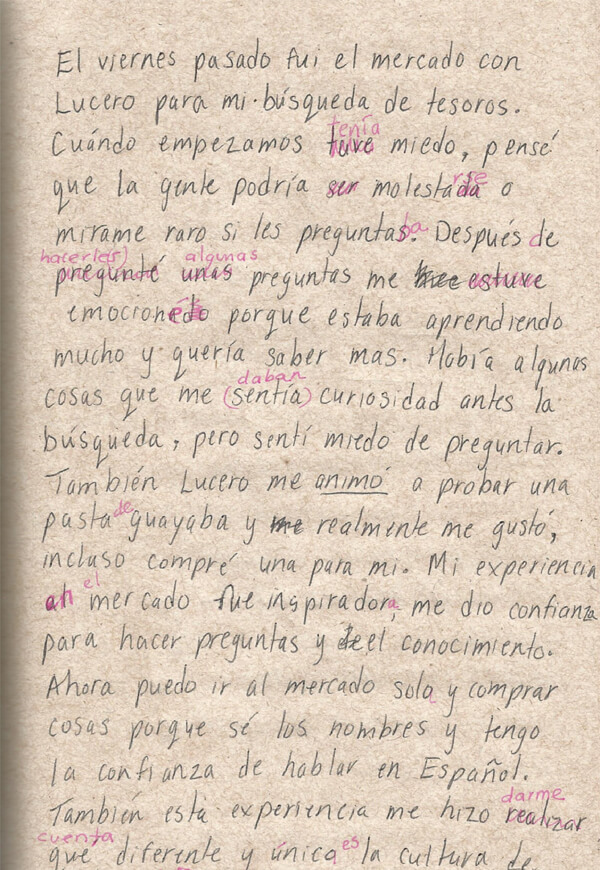 El viernes pasado fui el mercado con
Lucero para mi búsqueda de tesoros.
tenía
Cuándo empezamos tuve miedo, pensé
que la gente podría ser molestada rse o
mirame raro si les preguntas ba. Después de
hacerles) algunas
pregunté unas preguntas me estuve
emocionedo porque estaba aprendiendo
mucho y quería saber mas. Había algunas
daban
cosas que me (sentía) curiosidad antes la
búsqueda, pero sentí miedo de preguntar.
También Lucero me animó a probar una
pasta de guayaba y me realmente me gustó,
incluso compré una para mi. Mi experiencia
el
mercado fue inspiradora, me dio confianza
para hacer preguntas y el conocimiento.
Ahora puedo ir al mercado sola y comprar
cosas porque sé los nombres y tengo
la confianza de hablar en Español.
darme
También esta experiencia me hizo realizar
cuenta es
que diferente y única la cultura de